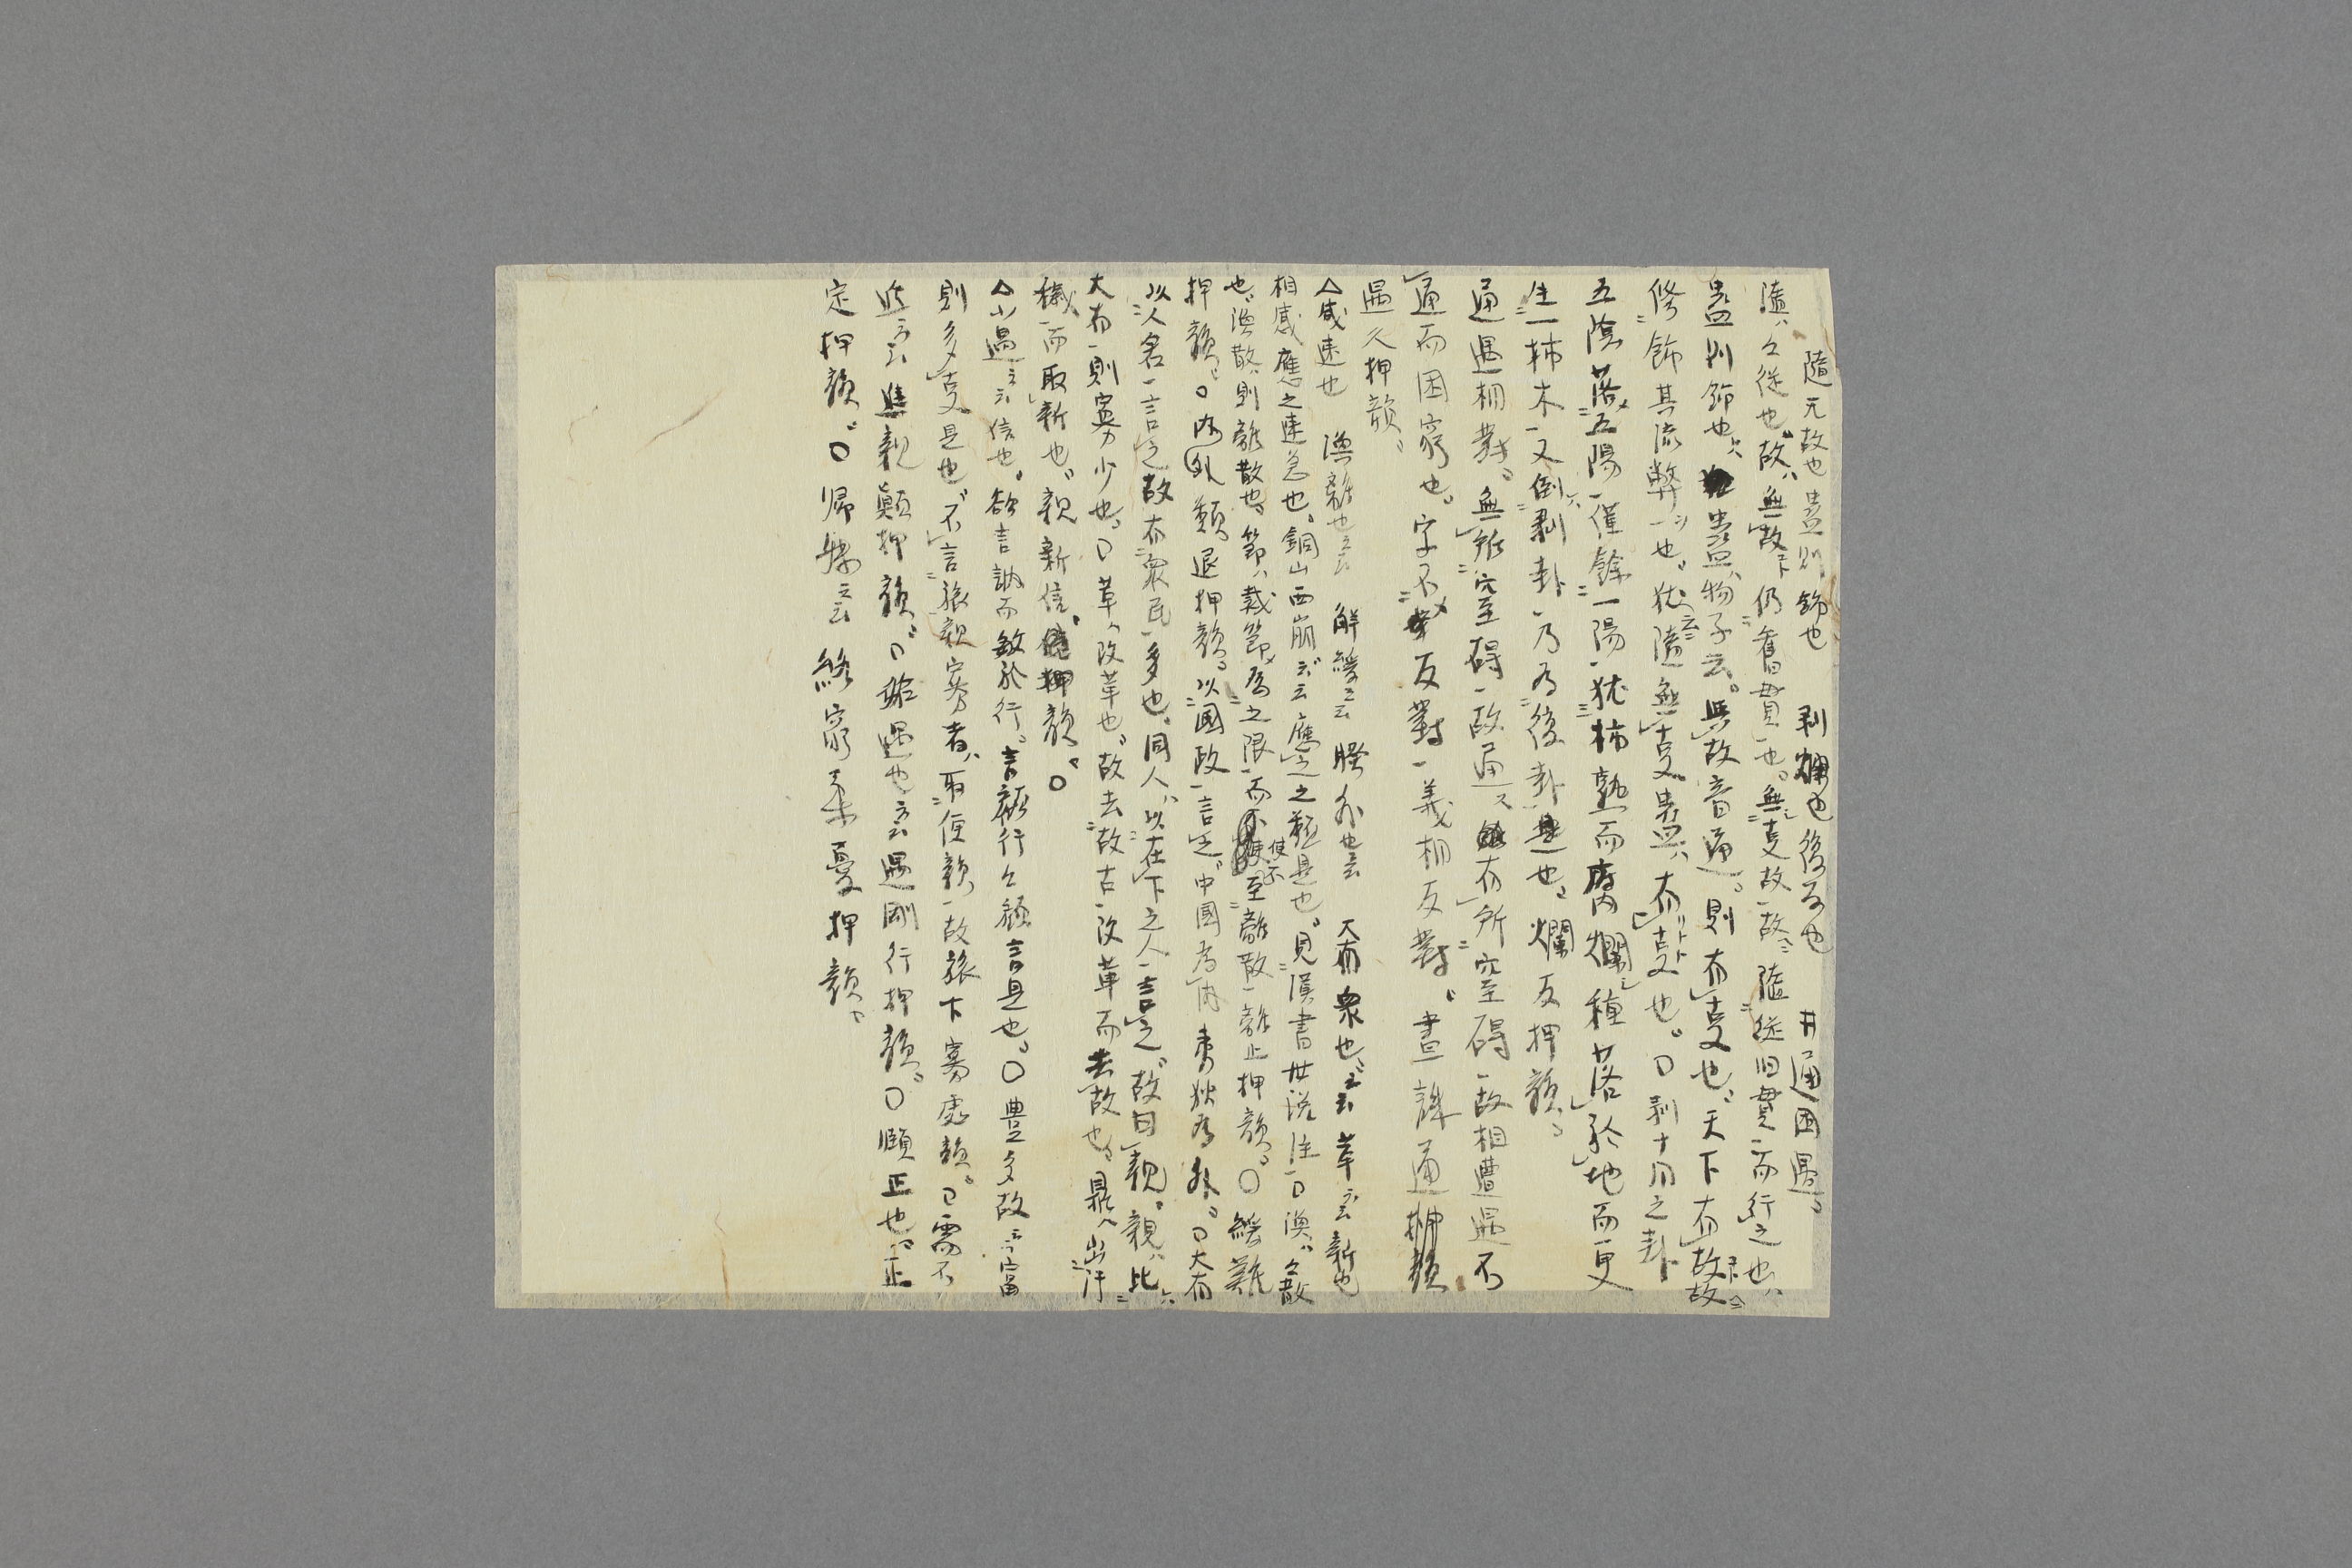 隨无故也蠱則飾也 剥爛也復反也 井通困遇
隨从從也故無故下仍舊貫一也無支故一故隨從旧貫一而行之也
蠱則飾也蠱物子云與故音通則有支也天下有故故
修飾其流弊一也犹隨無支蠱有支也○剥十月之卦
五陰落五陽一僅餘一陽一犹柿熟而腐爛種落於地而更
生一柿木一又倒剥卦一乃為復卦是也爛反押韻
通遇相對無所窒碍一故通又有所窒碍一故相遭遇不
通而困窮也字不反對一義相反對晝誅通押韻
遇久押韻
△咸速也 渙離也云云 解緩云云 睽外也云云 大有衆也云云 革云云新也
相感應之速急也銅山西崩云云應之之類是也見漢書世説注一○渙散
也渙散則離散也節裁節為之限一而使不至離散一離止押韻○緩難
押韻○内外類退押韻以國政一言之中國為内夷狄為外○大有
以人名一言之故有衆民一多也同人以在下之人一言之故曰親親比
大有一則寡少也○革改革也故去故古一改革而去故也鼎出汙
穢一而取新也親新信押韻○
△小過云云信也欲言訥而敏於行言顧行行顧言是也○豊多故云云富
則多支是也不言旅親寡者取便韻一故旅下寡處韻○需不
進云云進親顛押韻○姤遇也云云遇剛行押韻○頤正也正
定押韻○帰妹云云終窮柔憂押韻